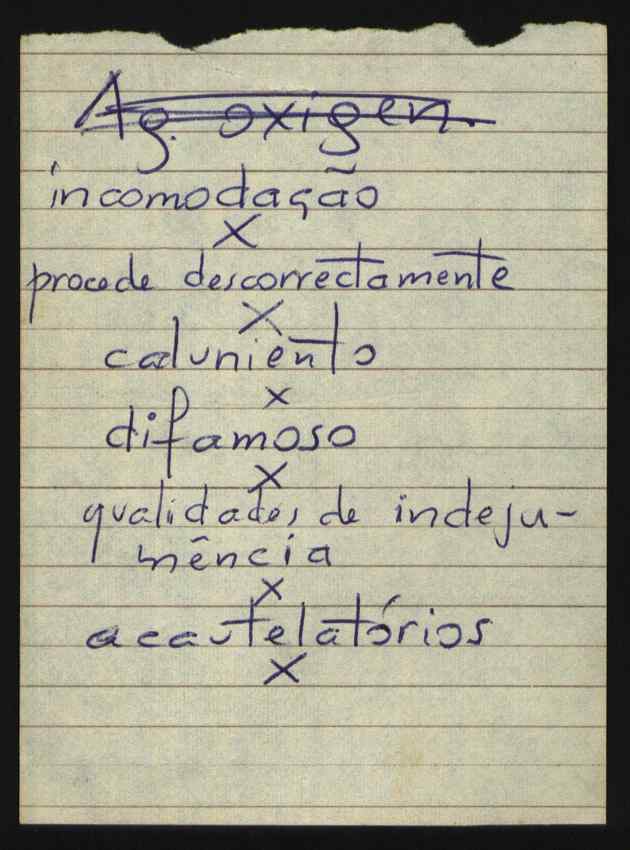 Ag. oxigen.
incomodação
X
procede descorrectamente
X
caluniento
X
difamoso
X
qualidades de indeju-
mência
X
acautelatórios
X